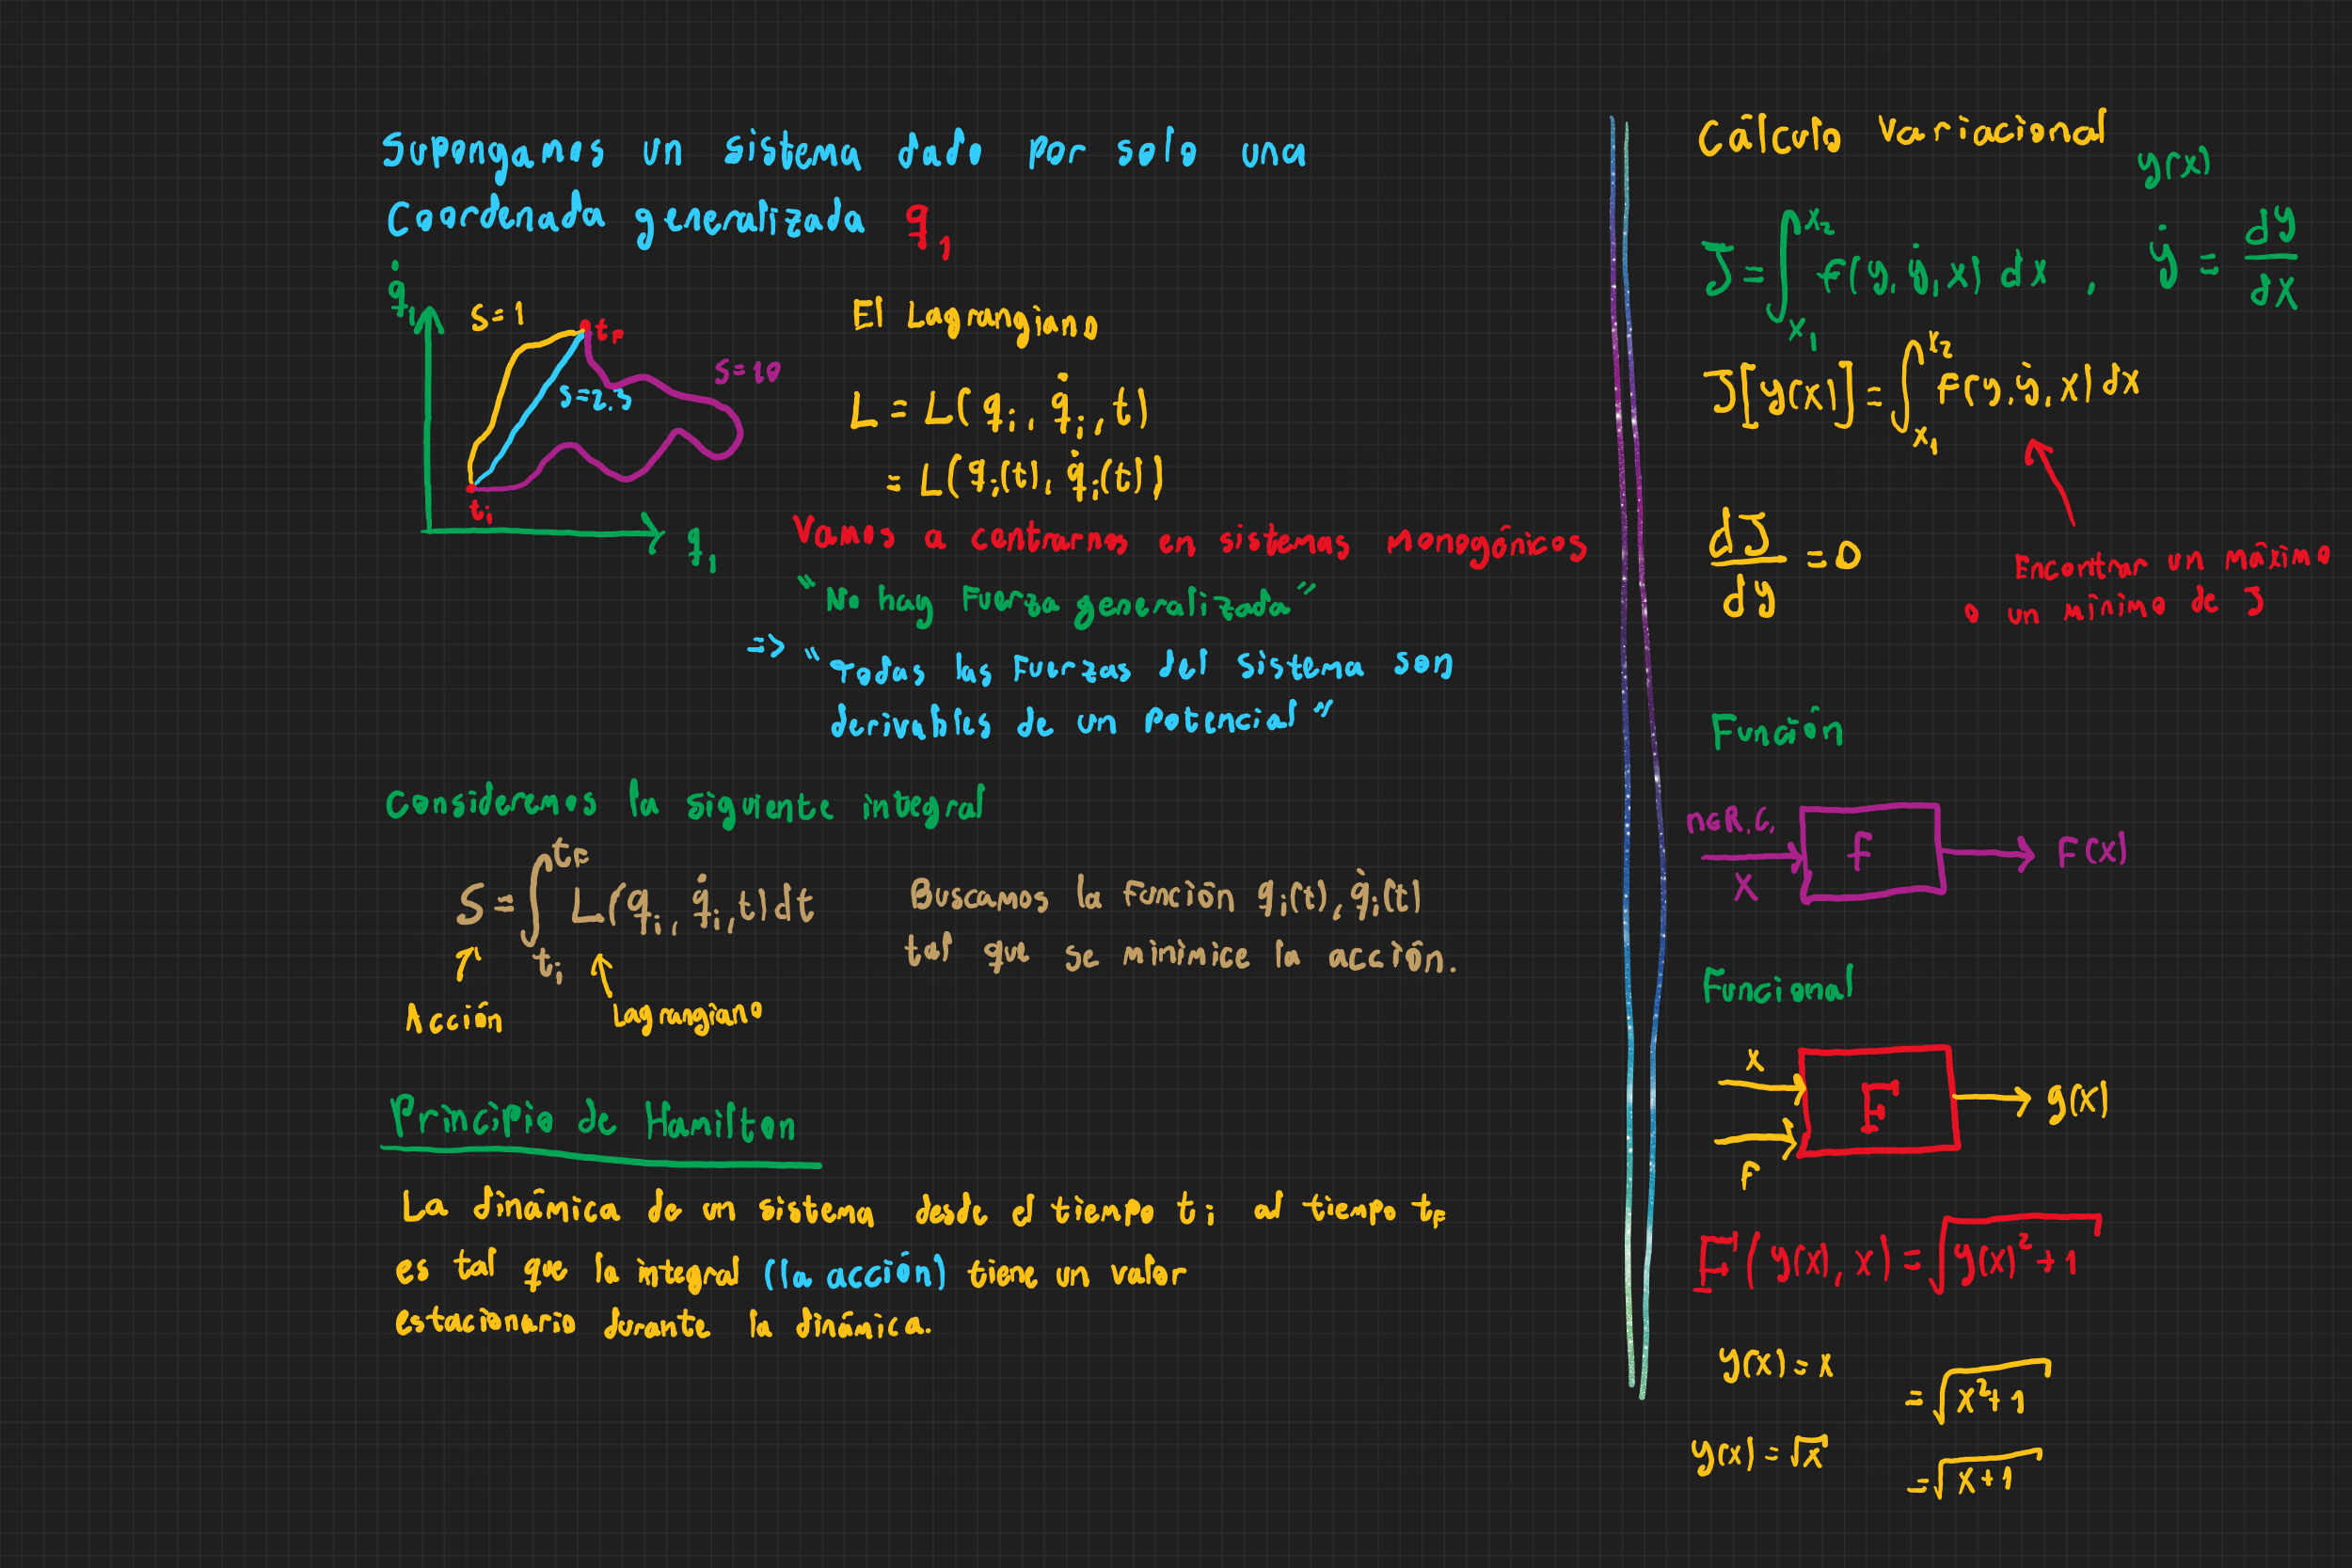 Supongamos un sistema dado por solo una
Coordenada generalizada q₁
q̇₁
S=1
t_F
S=10
S=2.3
t_i
q₁
El Lagrangiano
L = L(q_i, q̇_i, t)
= L(q_i(t), q̇_i(t))
Vamos a centrarnos en sistemas monogónicos
"No hay Fuerza generalizada"
=> "Todas las Fuerzas del sistema son
derivables de un potencial"
Consideremos la siguiente integral
S = ∫_{t_i}^{t_F} L(q_i, q̇_i, t) dt
Acción
Lagrangiano
Buscamos la Función q_i(t), q̇_i(t)
tal que se minimice la acción.
Principio de Hamilton
La dinámica de un sistema desde el tiempo t_i al tiempo t_F
es tal que la integral (la acción) tiene un valor
estacionario durante la dinámica.
Cálculo Variacional
y(x)
J = ∫_{x₁}^{x₂} f(y, ẏ, x) dx , ẏ = dy/dx
J[y(x)] = ∫_{x₁}^{x₂} F(y, ẏ, x) dx
dJ/dy = 0
Encontrar un máximo
o un mínimo de J
Función
n∈R.C.
x
f
F(x)
Funcional
x
F
F
g(x)
F(y(x), x) = √(y(x)²+1)
y(x) = x
= √(x²+1)
y(x) = √x
= √(x+1)